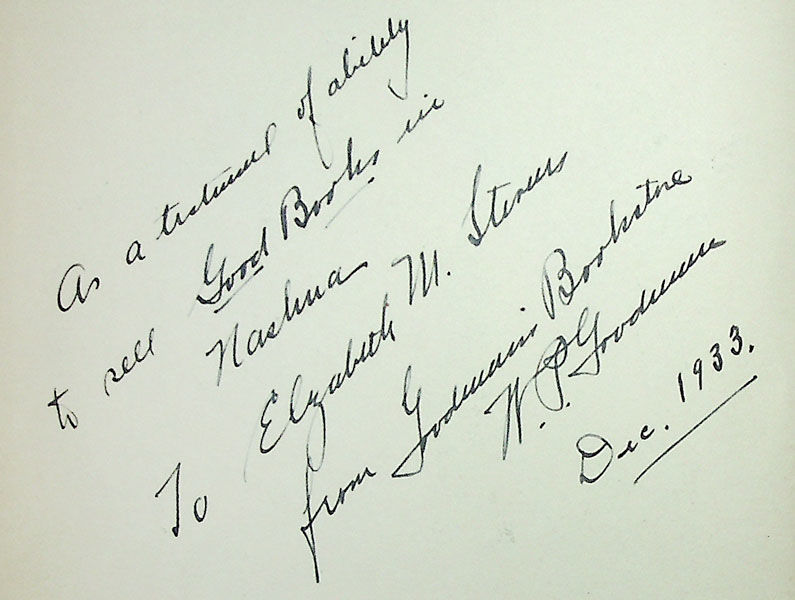 As a testament of ability
to sell Good Books in
Nashua
To Elizabeth M. Stevens
from Goodman's Bookstore
W. P. Goodman
Dec. 1933.